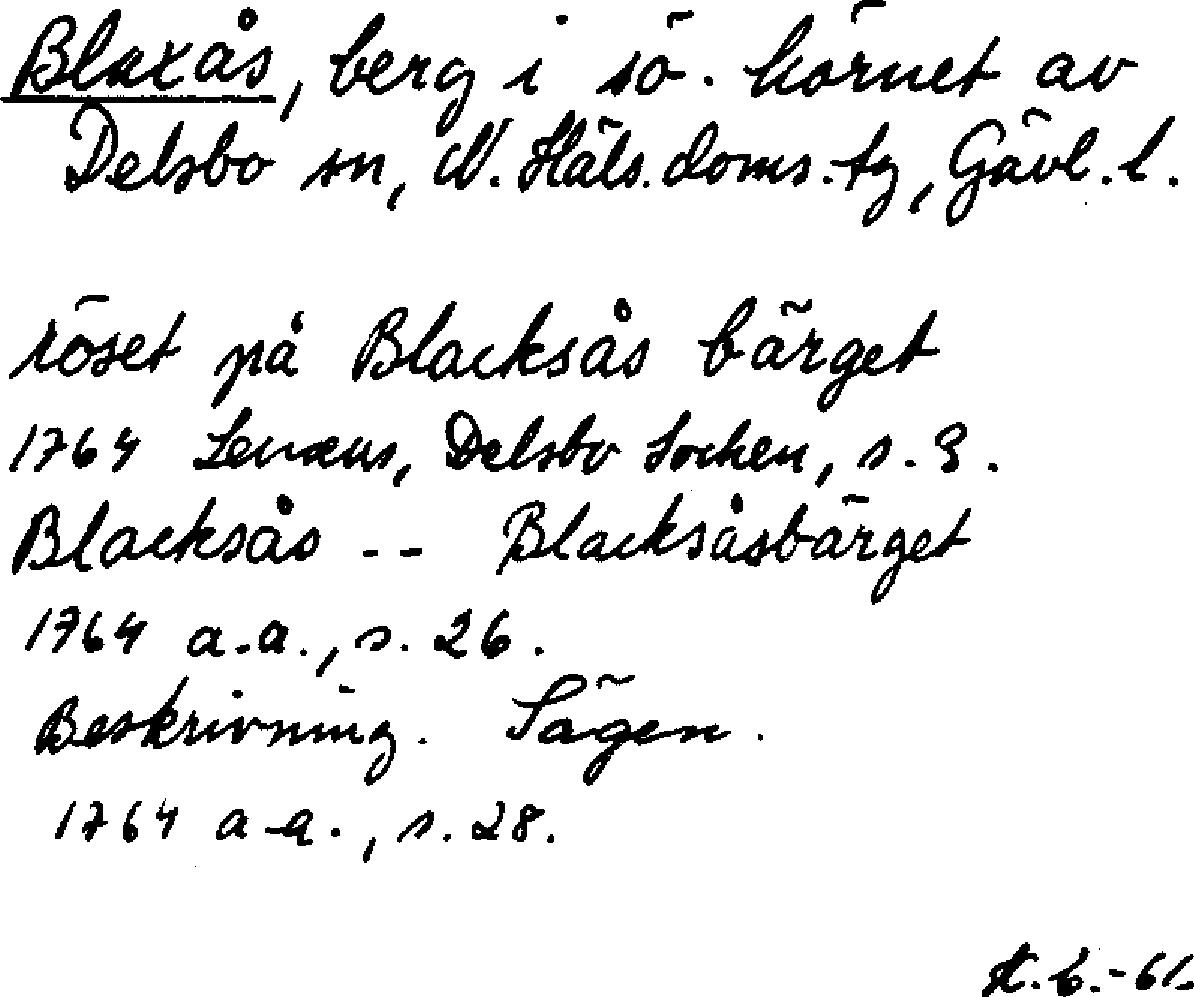 Blaxås, berg i sö. hörnet av
Delsbo sn, N. Häls. doms. tg, Gävl. l.
röset på Blacksås bärget
1764 Lenæus, Delsbo Sochen, s. 9.
Blacksås -- Blacksåsbärget
1764 a.a., s. 26.
Beskrivning. Sägen.
1764 a.a., s. 28.